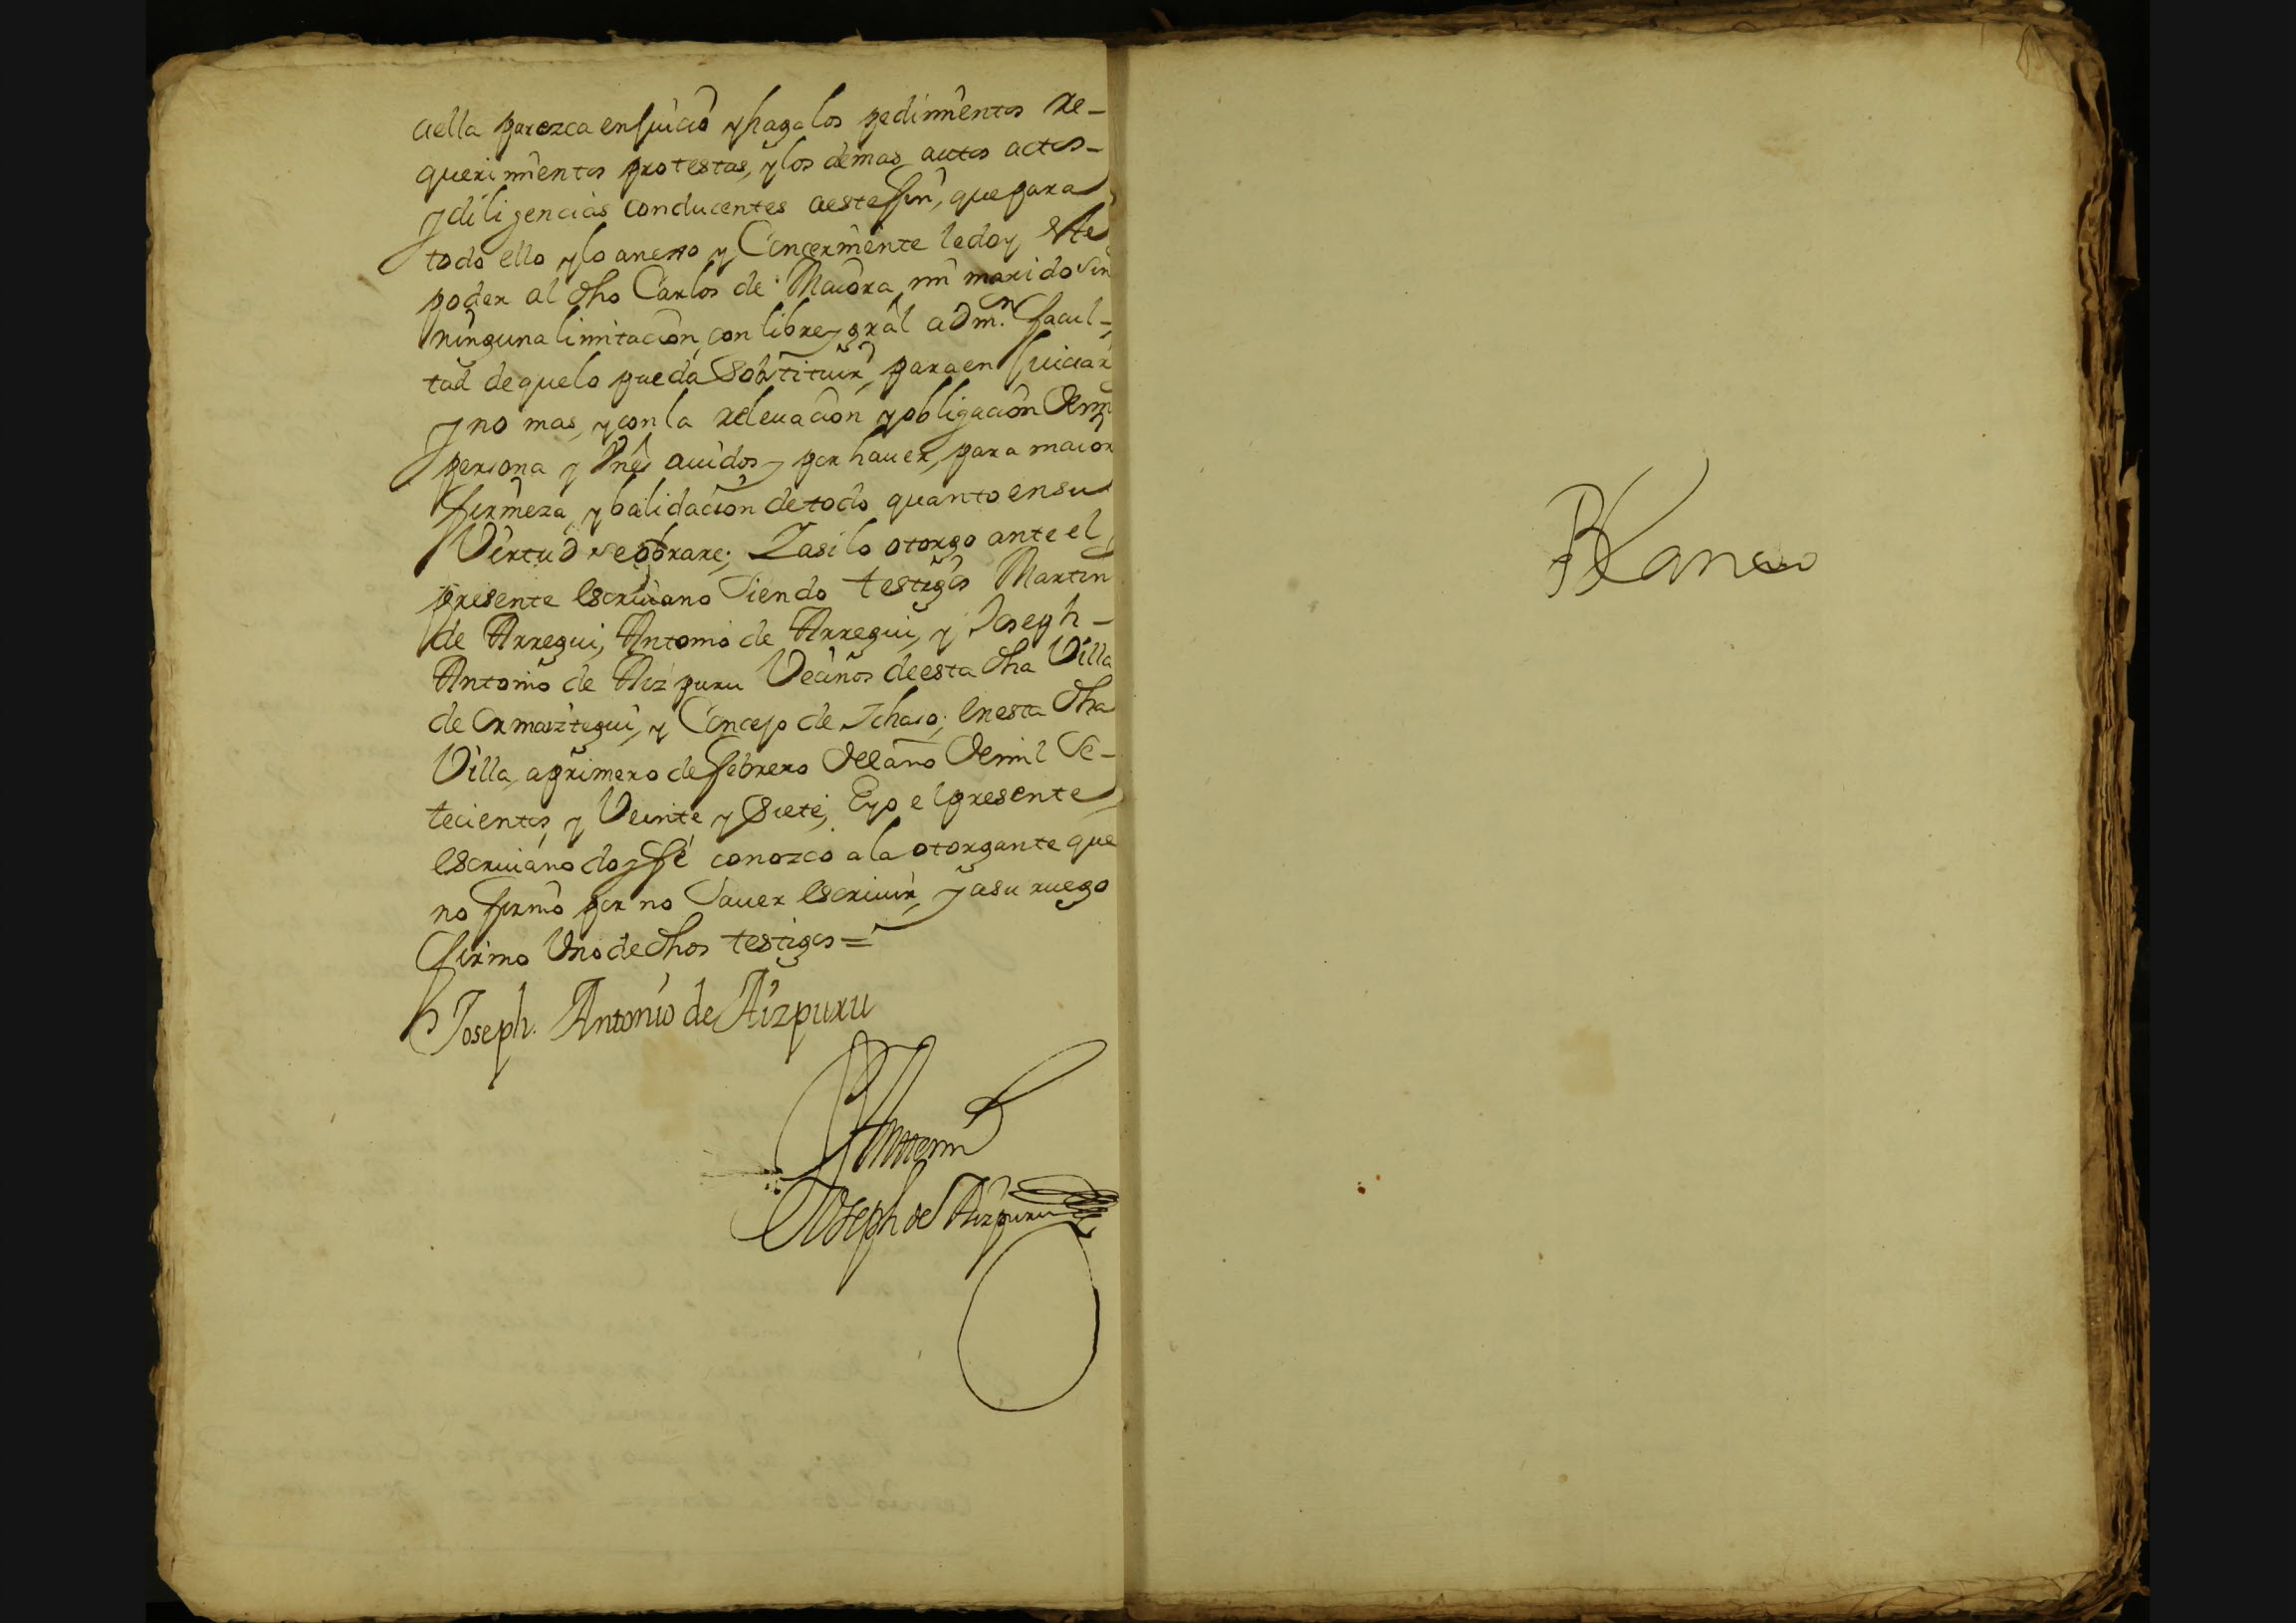 aella parezca en juicio y haga los pedimientos Re-
querimientos protestas, y los demas autos actos-
y diligencias conducentes a este fin, que para
todo ello y lo anexo y Concerniente le doy este
poder al dho Carlos de Maiora mi marido sin
ninguna limitacion, con libre y gral adm.n facul-
tad de que lo pueda Sobstituir, para en Juiciar
y no mas, y con la relevacion y obligacion de mi
persona y Vnes avidos y por haver, para maior
firmeza, y balidacion de todo quanto en su
Virtud se obrare; Y asi lo otorgo ante el
presente escrivano siendo testigos Martin
de Arregui, Antonio de Arregui, y Joseph-
Antonio de Aizpuru Vecinos de esta dha Villa
de Ormaiztegui, y Concejo de Ichaso; en esta dha
Villa, a primero de febrero del año de mil Se-
tecientos, y Veinte y Siete; E yo el presente
escrivano doy fé conozco a la otorgante que
no firmó por no saver escrivir, y a su ruego
firmo Uno de dhos testigos =
Joseph. Antonio de Aizpuru
Ante mi
Joseph de Aizpuru
Blanco